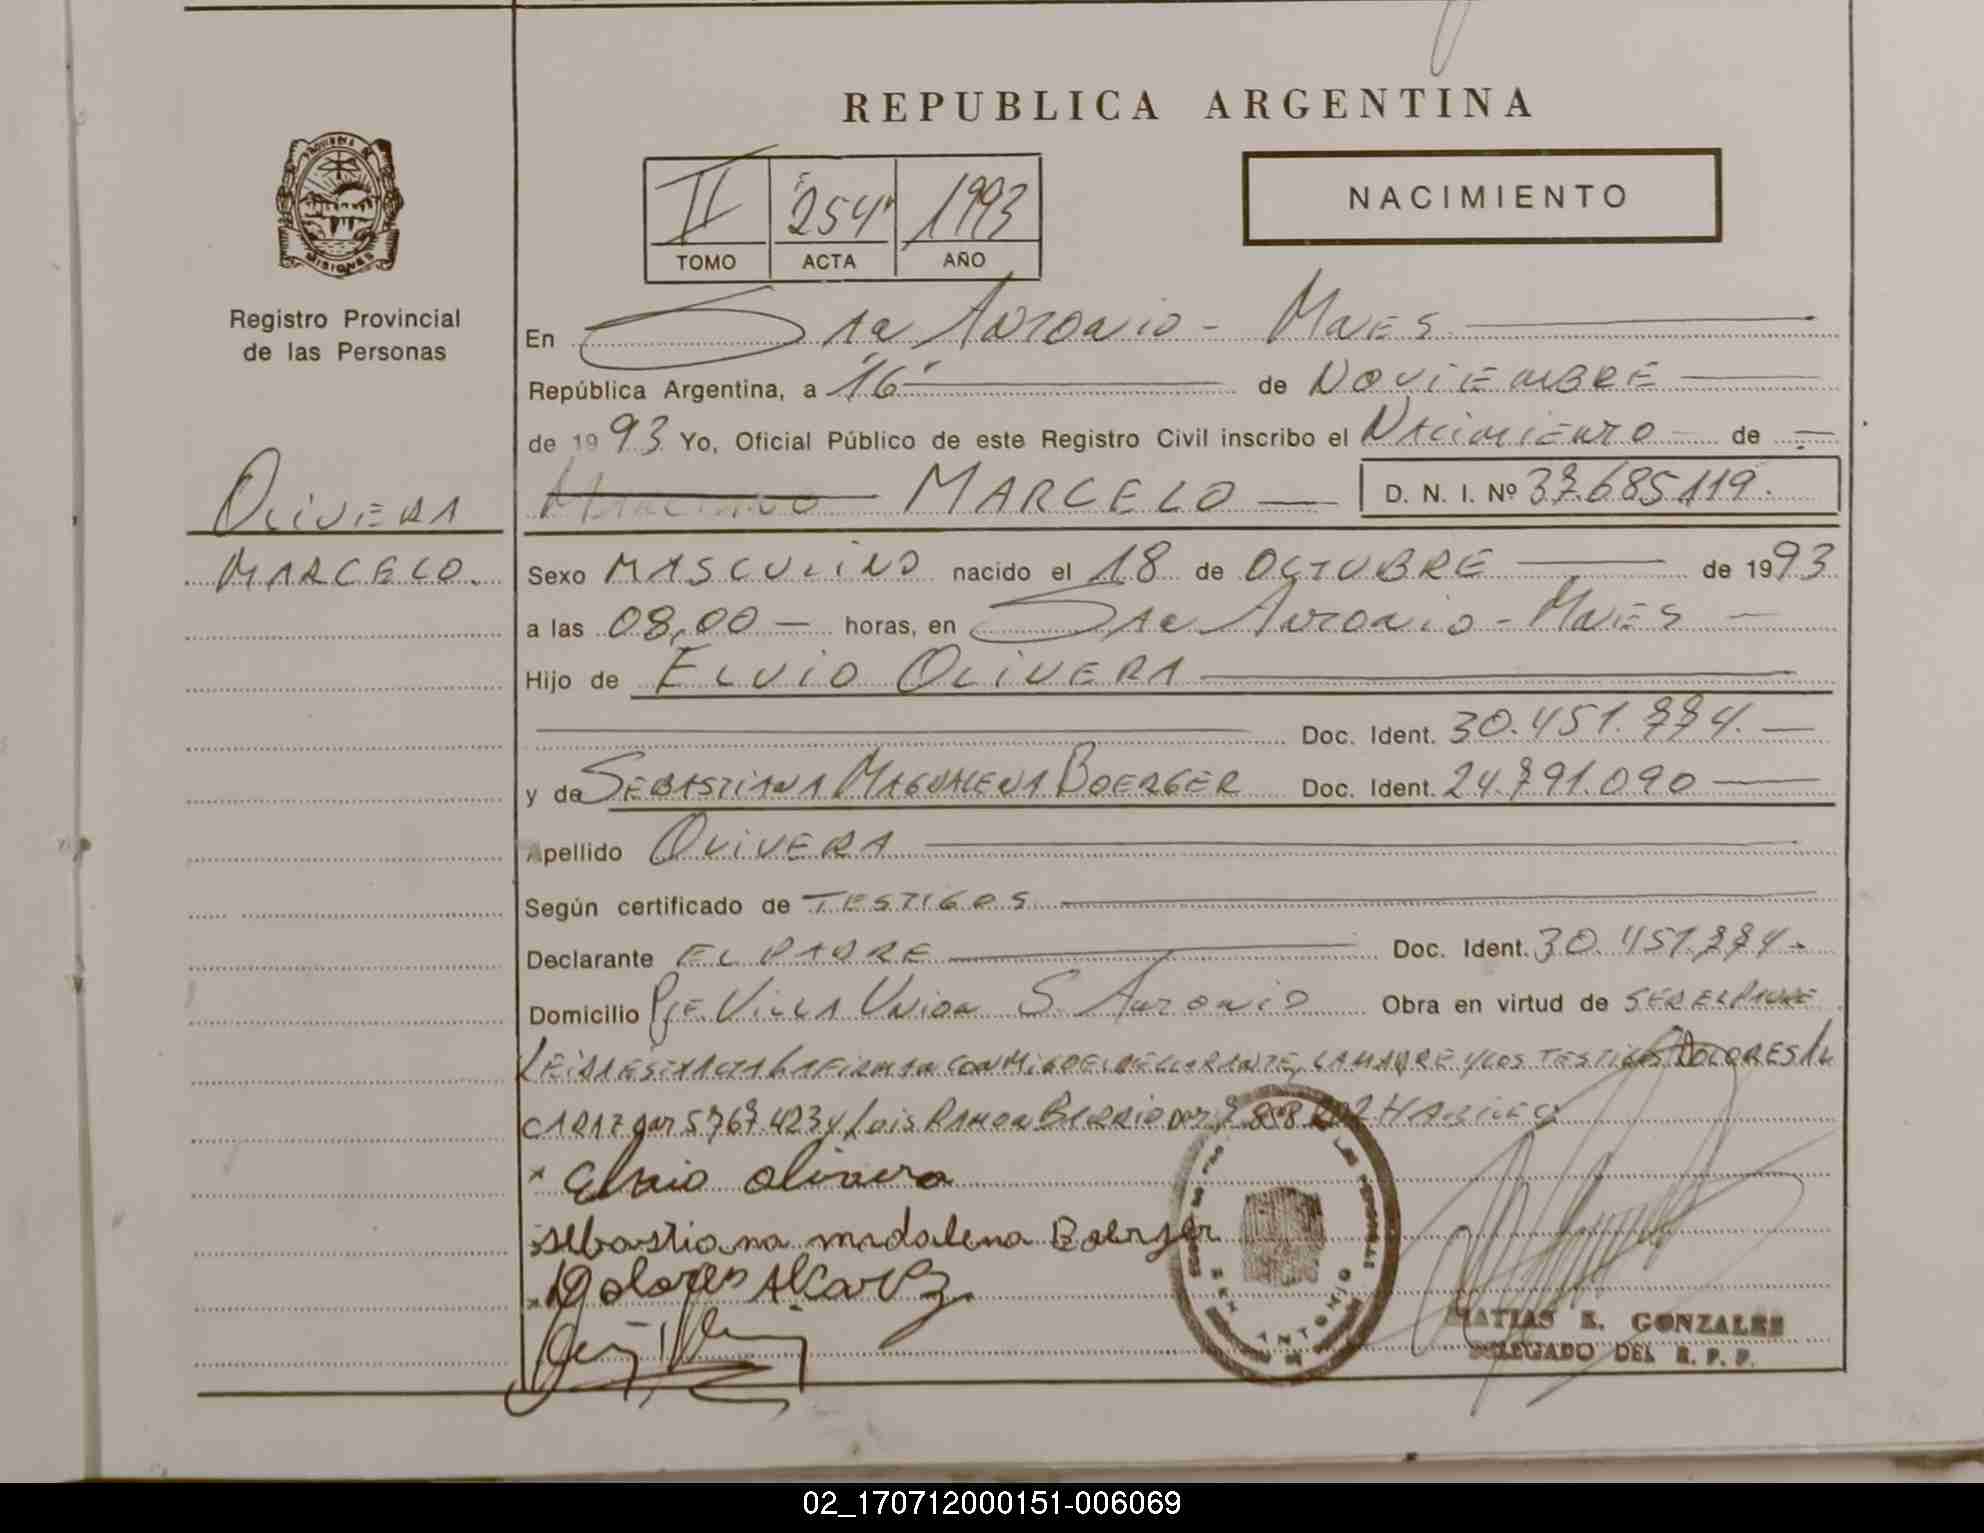 REPUBLICA ARGENTINA
NACIMIENTO
II "254" 1993
TOMO ACTA AÑO
MISIONES
Registro Provincial
de las Personas
En San Antonio - Mnes
República Argentina, a "16" de NOVIEMBRE
de 1993 Yo, Oficial Público de este Registro Civil inscribo el NACIMIENTO de
MARCELO D. N. I. Nº 37.685.119.
OLIVERA
MARCELO.
Sexo MASCULINO nacido el 18 de OCTUBRE de 1993
a las 08,00 horas, en San Antonio - Mnes
Hijo de ELVIO OLIVERA
Doc. Ident. 30.451.774.
y de SEBASTIANA MAGDALENA BOERGER Doc. Ident. 24.791.090
Apellido OLIVERA
Según certificado de TESTIGOS
Declarante EL PADRE Doc. Ident. 30.451.774.
Domicilio Pje. VILLA UNION S. ANTONIO Obra en virtud de SER EL PADRE
LEIDA ESTA ACTA LA FIRMAN CONMIGO EL DECLARANTE, LA MADRE Y LOS TESTIGOS DOLORES AL
CARAZ 5767.423 y LUIS RAMON BERRIO
Elvio Olivera
sebastiana madalena Boerger
Dolores Alcaraz
SAN ANTONIO
MATIAS E. GONZALEZ
DELEGADO DEL R. P. P.
02_170712000151-006069